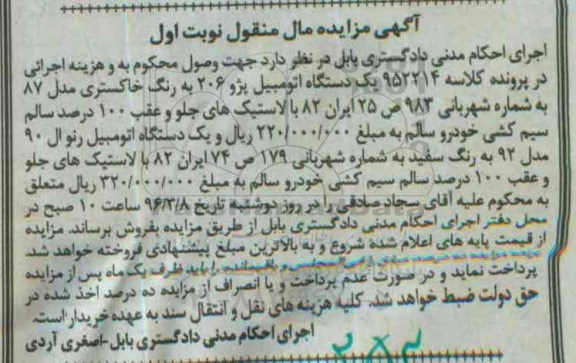 آگهی مزایده مال منقول نوبت اول
اجرای احکام مدنی دادگستری بابل در نظر دارد جهت وصول محکوم به و هزینه اجرائی
در پرونده کلاسه ۹۵۲۲۱۴ یک دستگاه اتومبیل پژو ۲۰۶ به رنگ خاکستری مدل ۸۷
به شماره شهربانی ۹۸۳ ص ۲۵ ایران ۸۲ با لاستیک های جلو و عقب ۱۰۰ درصد سالم
سیم کشی خودرو سالم به مبلغ ۲۲۰/۰۰۰/۰۰۰ ریال و یک دستگاه اتومبیل رنو ال ۹۰
مدل ۹۲ به رنگ سفید به شماره شهربانی ۱۷۹ ص ۷۴ ایران ۸۲ با لاستیک های جلو
و عقب ۱۰۰ درصد سالم سیم کشی خودرو سالم به مبلغ ۳۲۰/۰۰۰/۰۰۰ ریال متعلق
به محکوم علیه آقای سجاد صادقی را در روز دوشنبه تاریخ ۹۶/۳/۸ ساعت ۱۰ صبح در
محل دفتر اجرای احکام مدنی دادگستری بابل از طریق مزایده بفروش برساند. مزایده
از قیمت پایه های اعلام شده شروع و به بالاترین مبلغ پیشنهادی فروخته خواهد شد.
را باید ظرف یک ماه پس از مزایده
پرداخت نماید و در صورت عدم پرداخت و یا انصراف از مزایده ده درصد اخذ شده در
حق دولت ضبط خواهد شد. کلیه هزینه های نقل و انتقال سند به عهده خریدار است.
اجرای احکام مدنی دادگستری بابل-اصغری آردی